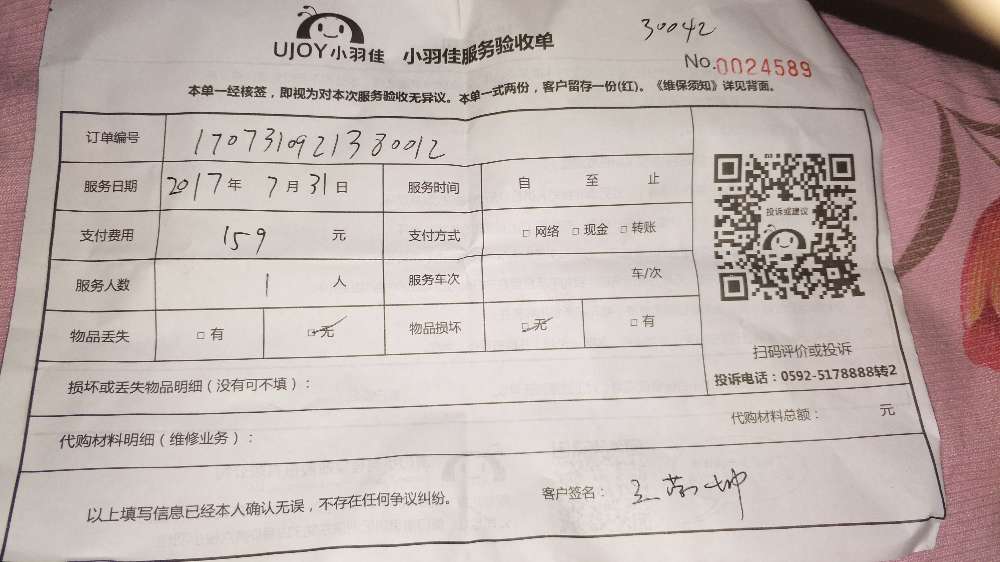 30042
UJOY小羽佳 小羽佳服务验收单
No.0024589
本单一经核签，即视为对本次服务验收无异议。本单一式两份，客户留存一份(红)。《维保须知》详见背面。
订单编号 1707310921380012
服务日期 2017年 7月 31日 服务时间 自 至 止
投诉或建议
支付费用 159 元 支付方式 □网络 □现金 □转账
服务人数 1 人 服务车次 车/次
物品丢失 □有 □无 物品损坏 □无 □有
扫码评价或投诉
投诉电话：0592-5178888转2
损坏或丢失物品明细（没有可不填）：
代购材料明细（维修业务）： 代购材料总额： 元
以上填写信息已经本人确认无误，不存在任何争议纠纷。 客户签名：